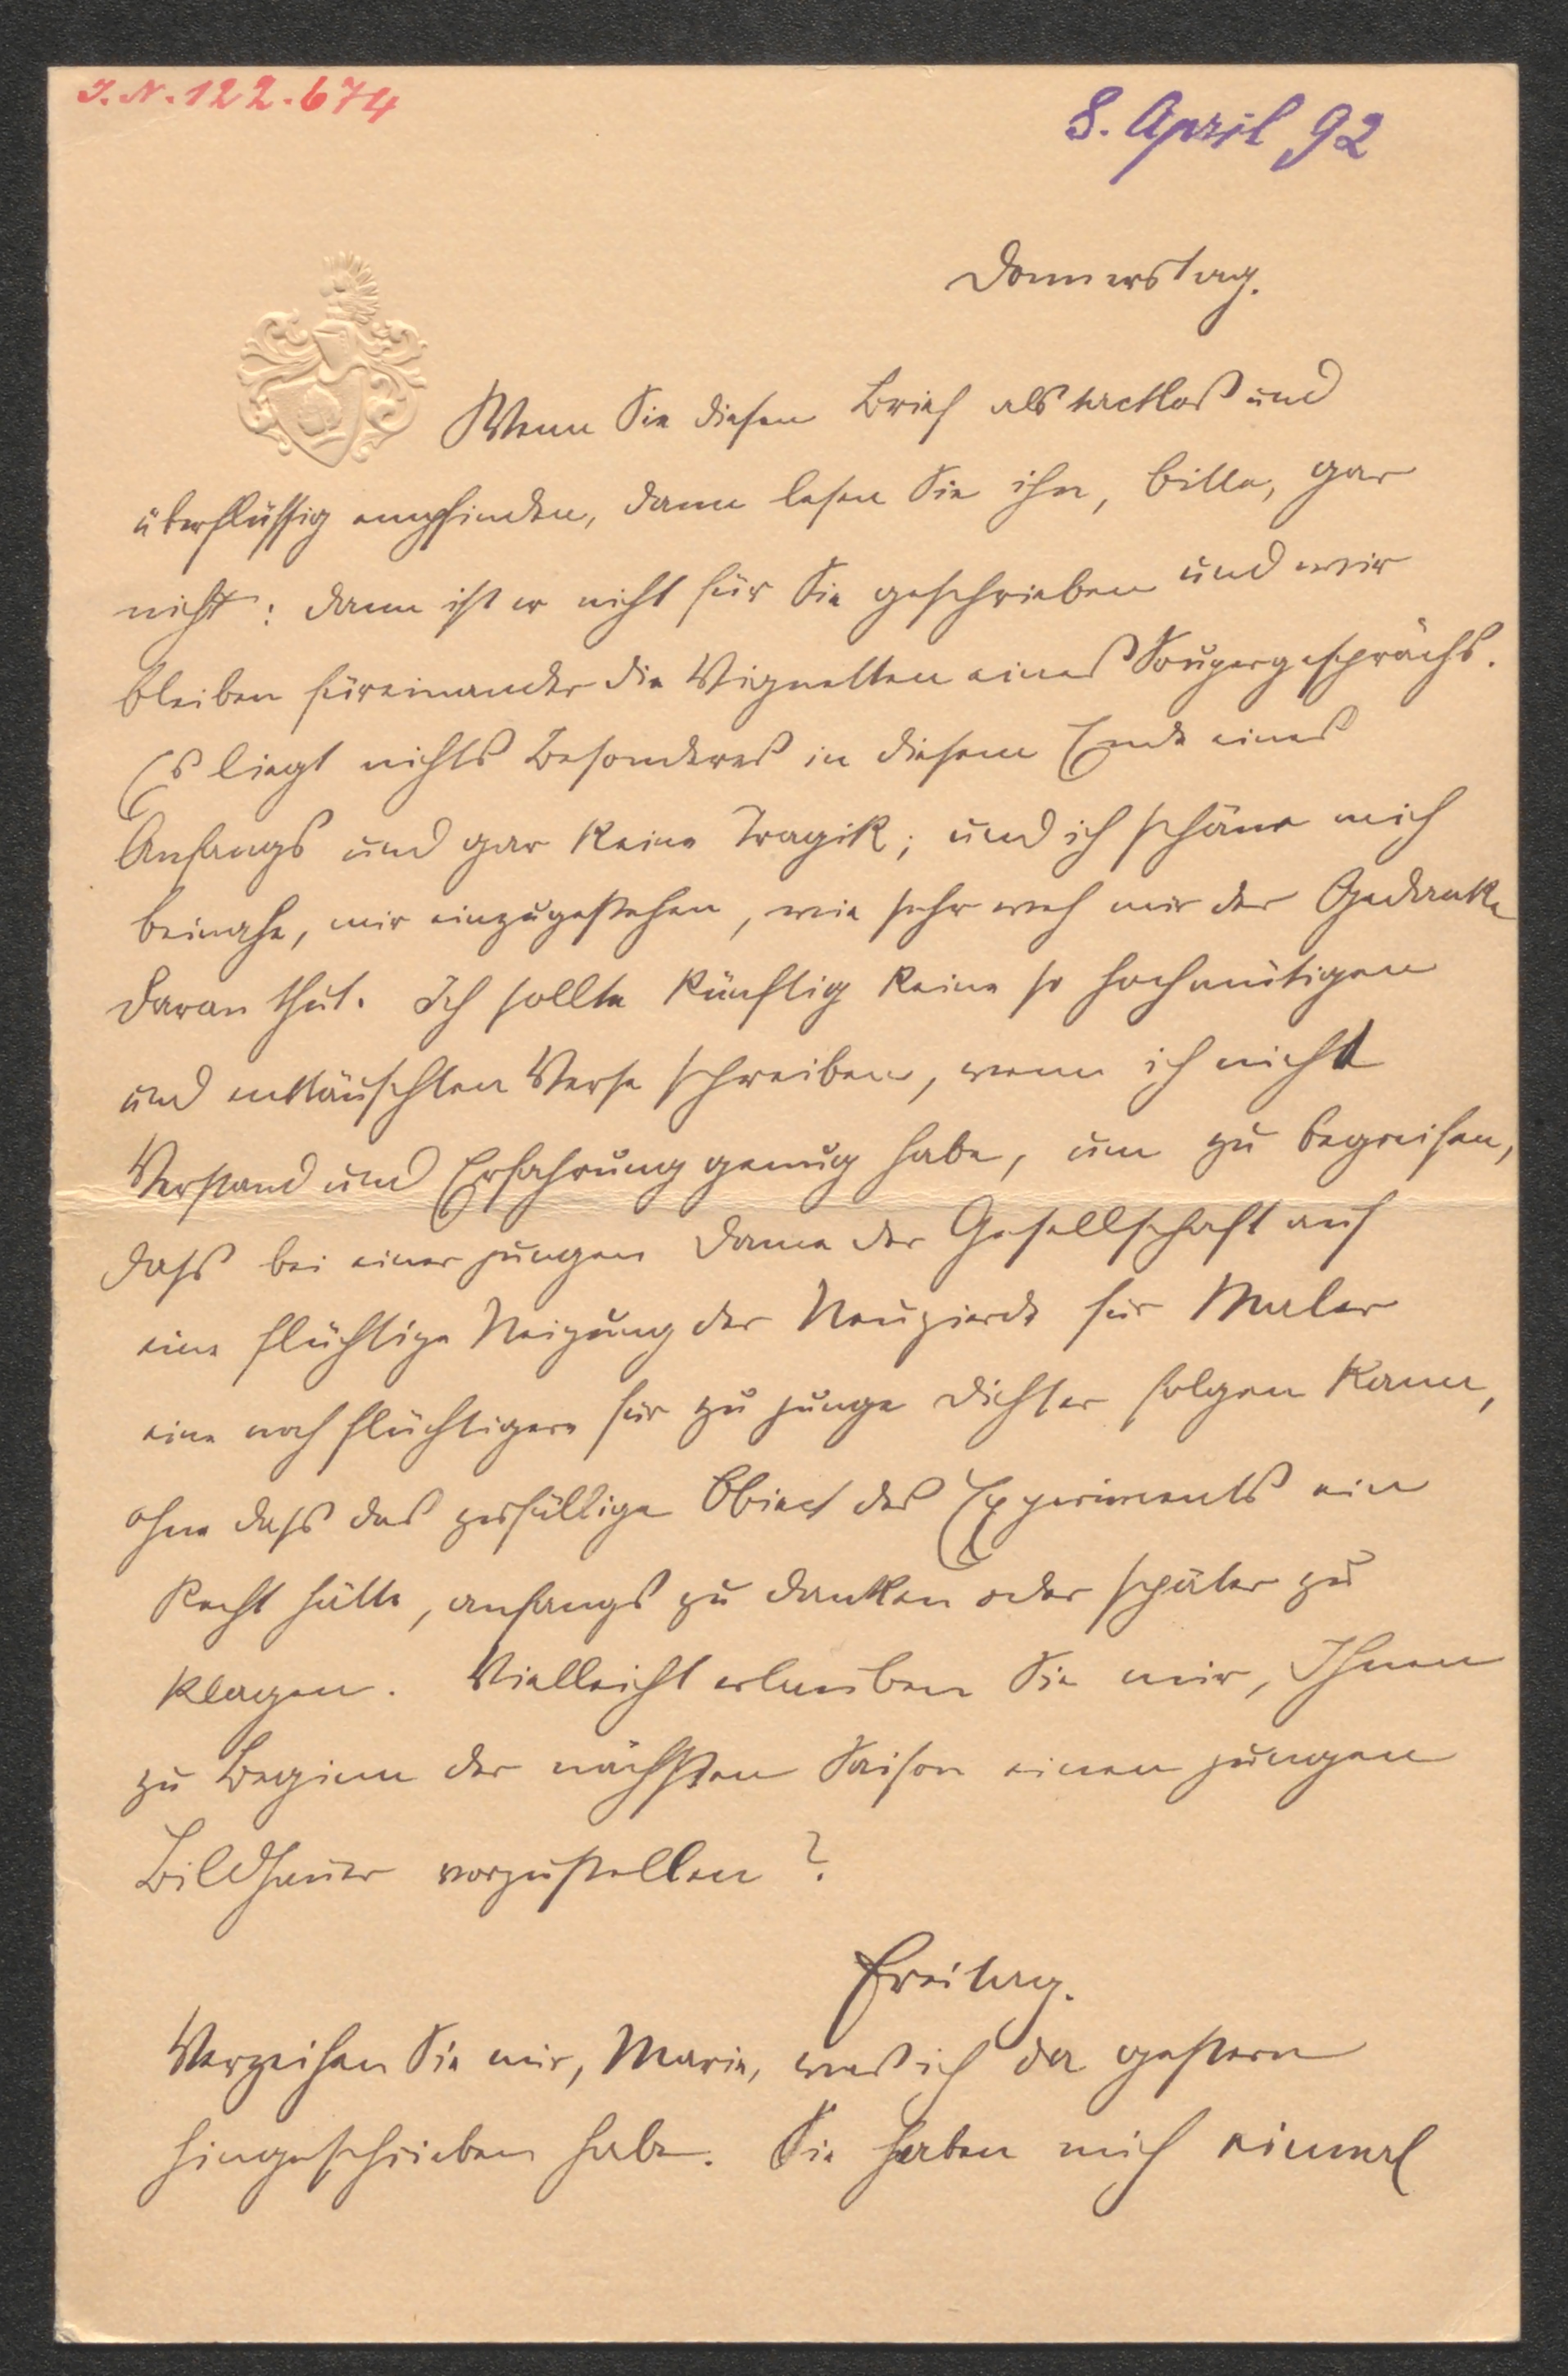 I.N. 122.674
8. April 92
Donnerstag.
Wenn Sie diesen Brief als tactlos und
überflüssig empfinden, dann lesen Sie ihn, bitte, gar
nicht: dann ist er nicht für Sie geschrieben und wir
bleiben füreinander die Vignetten eines Soupergesprächs.
Es liegt nichts Besonderes in diesem Ende eines
Anfangs und gar keine Tragik; und ich schäme mich
beinahe, mir einzugestehen, wie sehr weh mir der Gedanke
daran thut. Ich sollte künftig keine so hochmütigen
und enttäuschten Verse schreiben, wenn ich nicht
Verstand und Erfahrung genug habe, um zu begreifen,
dass bei einer jungen Dame der Gesellschaft auf
eine flüchtige Neigung der Neugierde für Maler
eine noch flüchtigere für zu junge Dichter folgen kann,
ohne dass das zufällige Object des Experiments ein
Recht hätte, anfangs zu danken oder später zu
klagen. Vielleicht erlauben Sie mir, Ihnen
zu Beginn der nächsten Saison einen jungen
Bildhauer vorzustellen?
Freitag.
Verzeihen Sie mir, Marie, was ich da gestern
hingeschrieben habe. Sie haben mich einmal